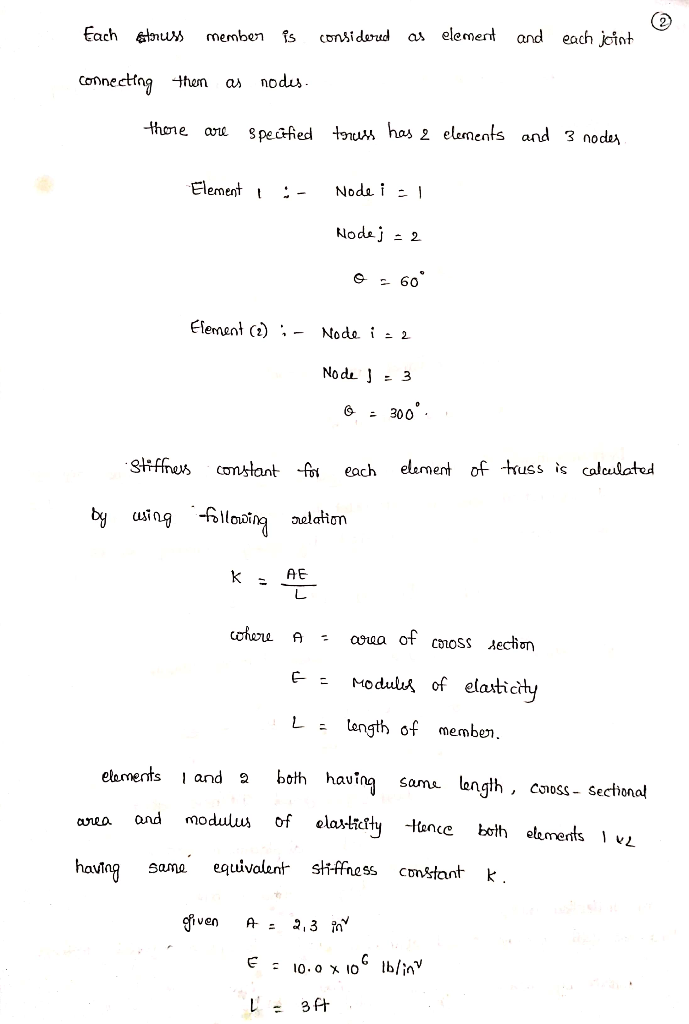 2
Each truss member is considered as element and each joint
connecting them as nodes.
there are specified truss has 2 elements and 3 nodes
Element 1 :- Node i = 1
Node j = 2
θ = 60°
Element (2) :- Node i = 2
Node j = 3
θ = 300°.
Stiffness constant for each element of truss is calculated
by using following relation
K = AE/L
where A = area of cross section
E = Modulus of elasticity
L = length of member.
elements 1 and 2 both having same length, cross-sectional
area and modulus of elasticity Hence both elements 1 & 2
having same equivalent stiffness constant K.
given A = 2,3 in²
E = 10.0 x 10⁶ lb/in²
L = 3ft